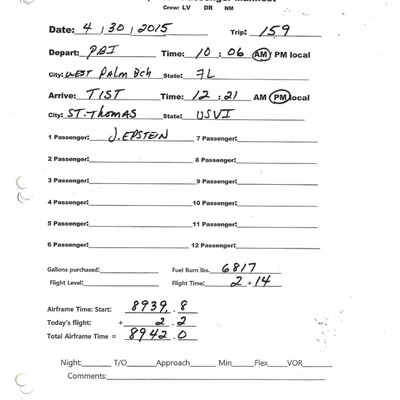 Passenger Manifest
Crew: LV DR NM
Date: 4 / 30 / 2015 Trip: 159
Depart: PBI Time: 10 : 06 AM PM local
City: WEST PALM BCH State: FL
Arrive: TIST Time: 12 : 21 AM PM local
City: ST. THOMAS State: USVI
1 Passenger: J. EPSTEIN 7 Passenger:
2 Passenger: 8 Passenger:
3 Passenger: 9 Passenger:
4 Passenger: 10 Passenger:
5 Passenger: 11 Passenger:
6 Passenger: 12 Passenger:
Gallons purchased: Fuel Burn lbs. 6817
Flight Level: Flight Time: 2 + 14
Airframe Time: Start: 8939 . 8
Today's flight: + 2 . 2
Total Airframe Time = 8942 . 0
Night: T/O Approach Min Flex VOR
Comments: